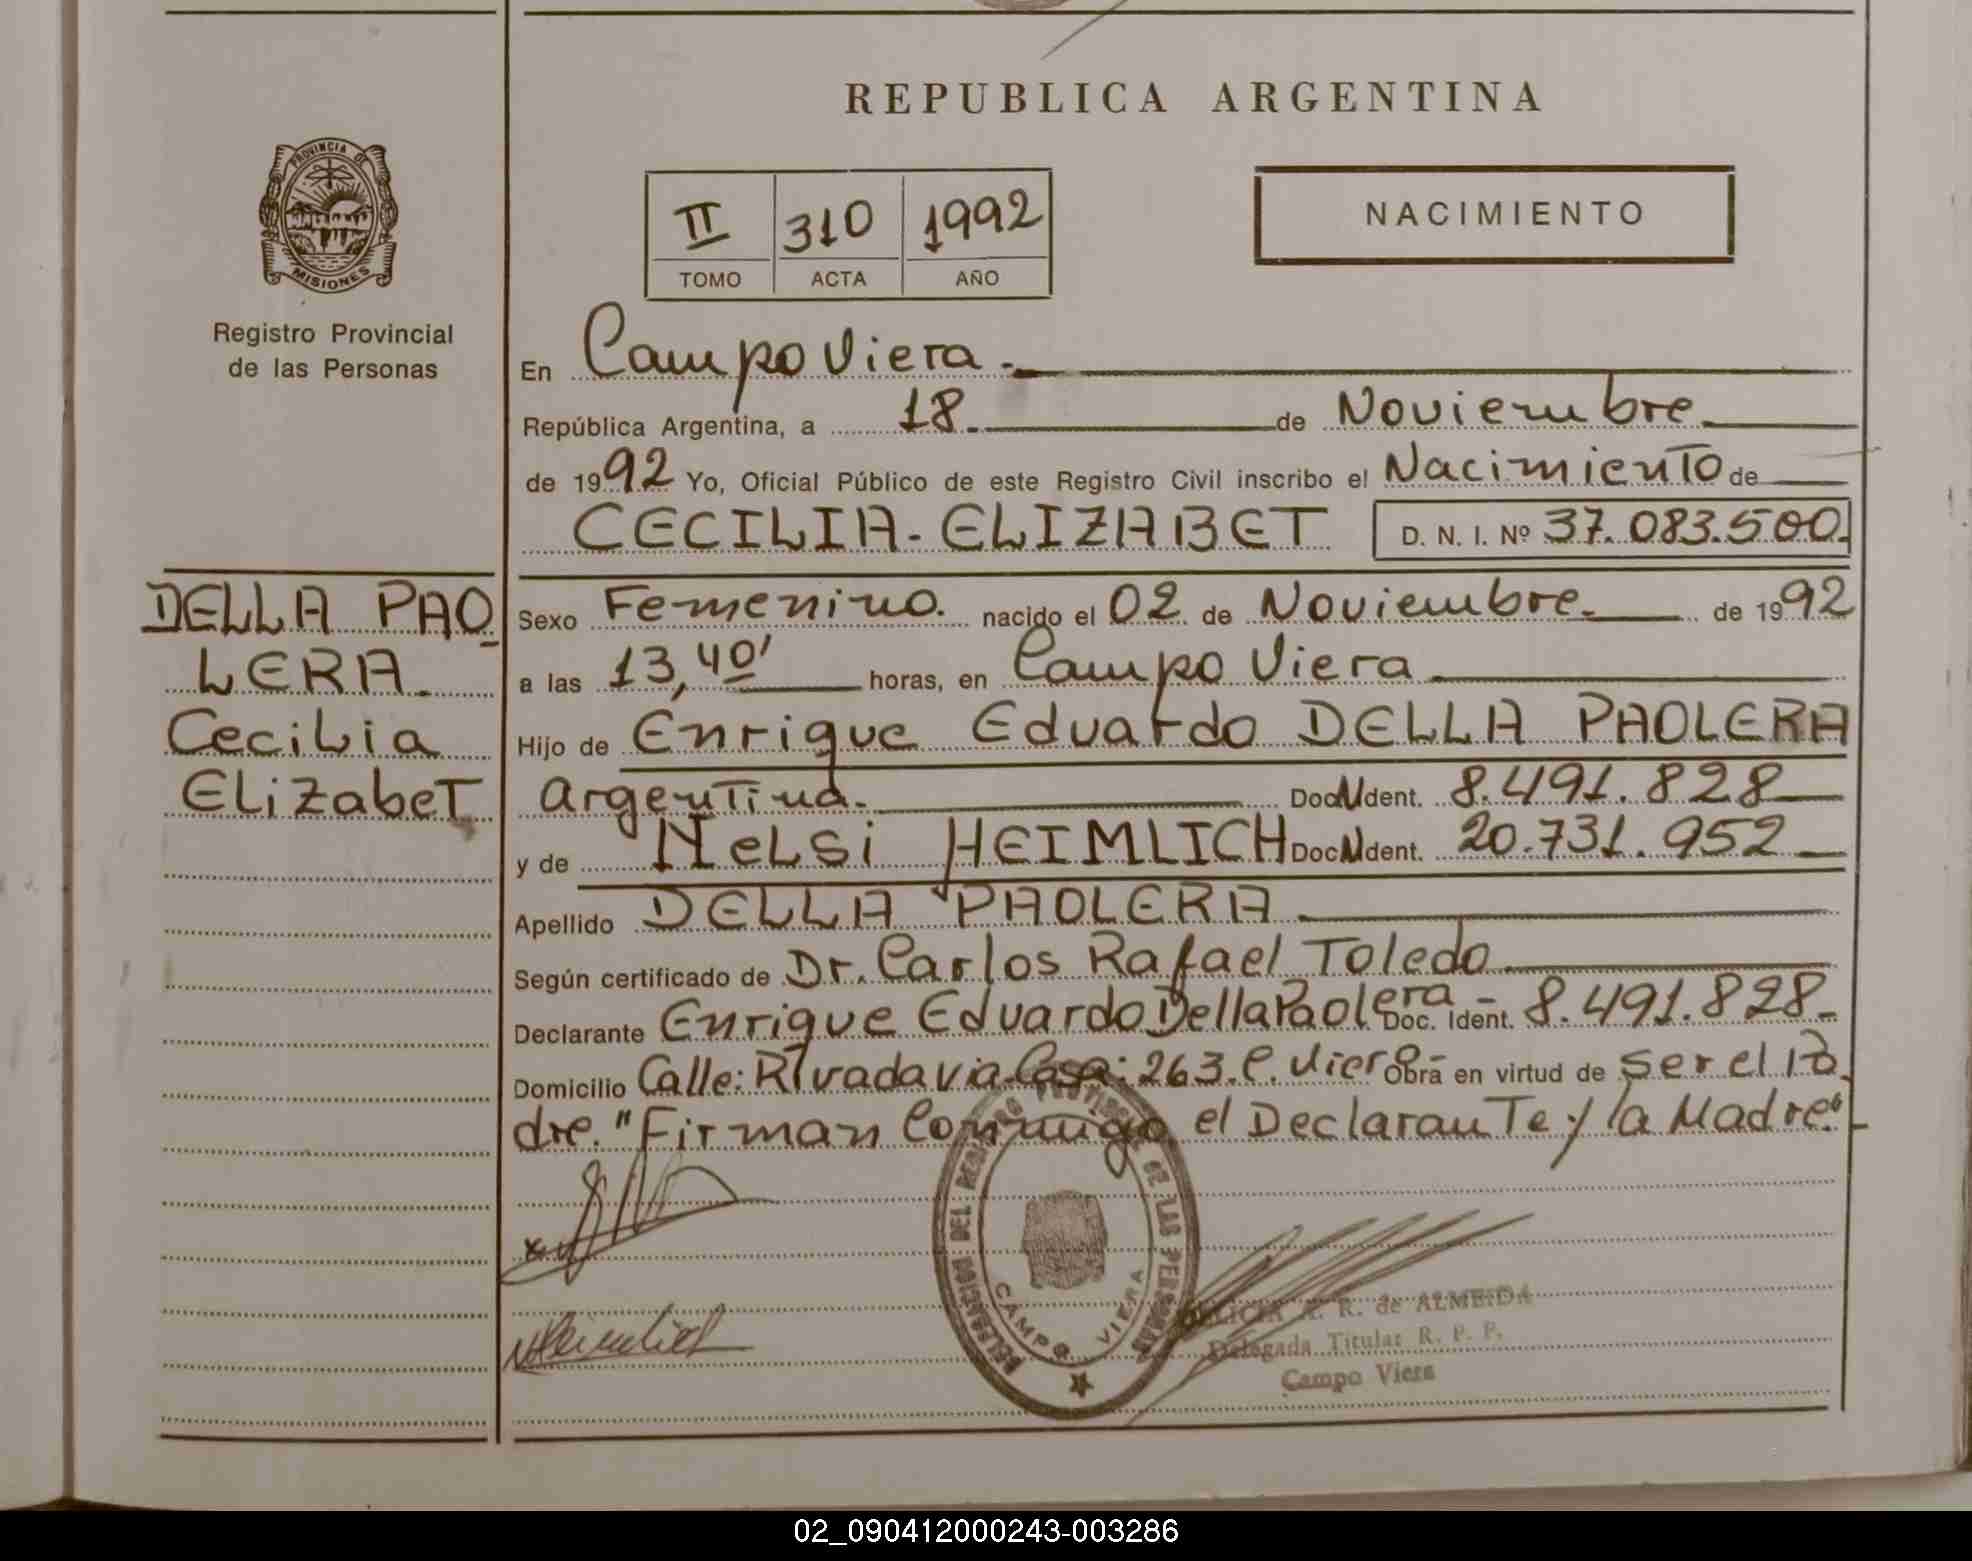 REPUBLICA ARGENTINA
PROVINCIA DE
MISIONES
Registro Provincial
de las Personas
II 310 1992
TOMO ACTA AÑO
NACIMIENTO
En Campo Viera.-
República Argentina, a 18. de Noviembre
de 1992 Yo, Oficial Público de este Registro Civil inscribo el Nacimiento de
CECILIA-ELIZABET D. N. I. Nº 37.083.500.
DELLA PAO
LERA.
Cecilia
Elizabet
Sexo Femenino. nacido el 02 de Noviembre. de 1992
a las 13,40' horas, en Campo Viera
Hijo de Enrique Eduardo DELLA PAOLERA
Argentina. Doc Ident. 8.491.828
y de Nelsi HEIMLICH Doc Ident. 20.731.952
Apellido DELLA PAOLERA
Según certificado de Dr. Carlos Rafael Toledo
Declarante Enrique Eduardo Della Paolera - Doc. Ident. 8.491.828-
Domicilio Calle: Rivadavia Casa: 263. C. Viera Obra en virtud de ser el Pa
dre. "Firman Conmigo el Declarante y la Madre"
DELEGACION DEL REGISTRO PROVINCIAL DE LAS PERSONAS
CAMPO VIERA
R. de ALMEIDA
Delegada Titular R. P. P.
Campo Viera
02_090412000243-003286